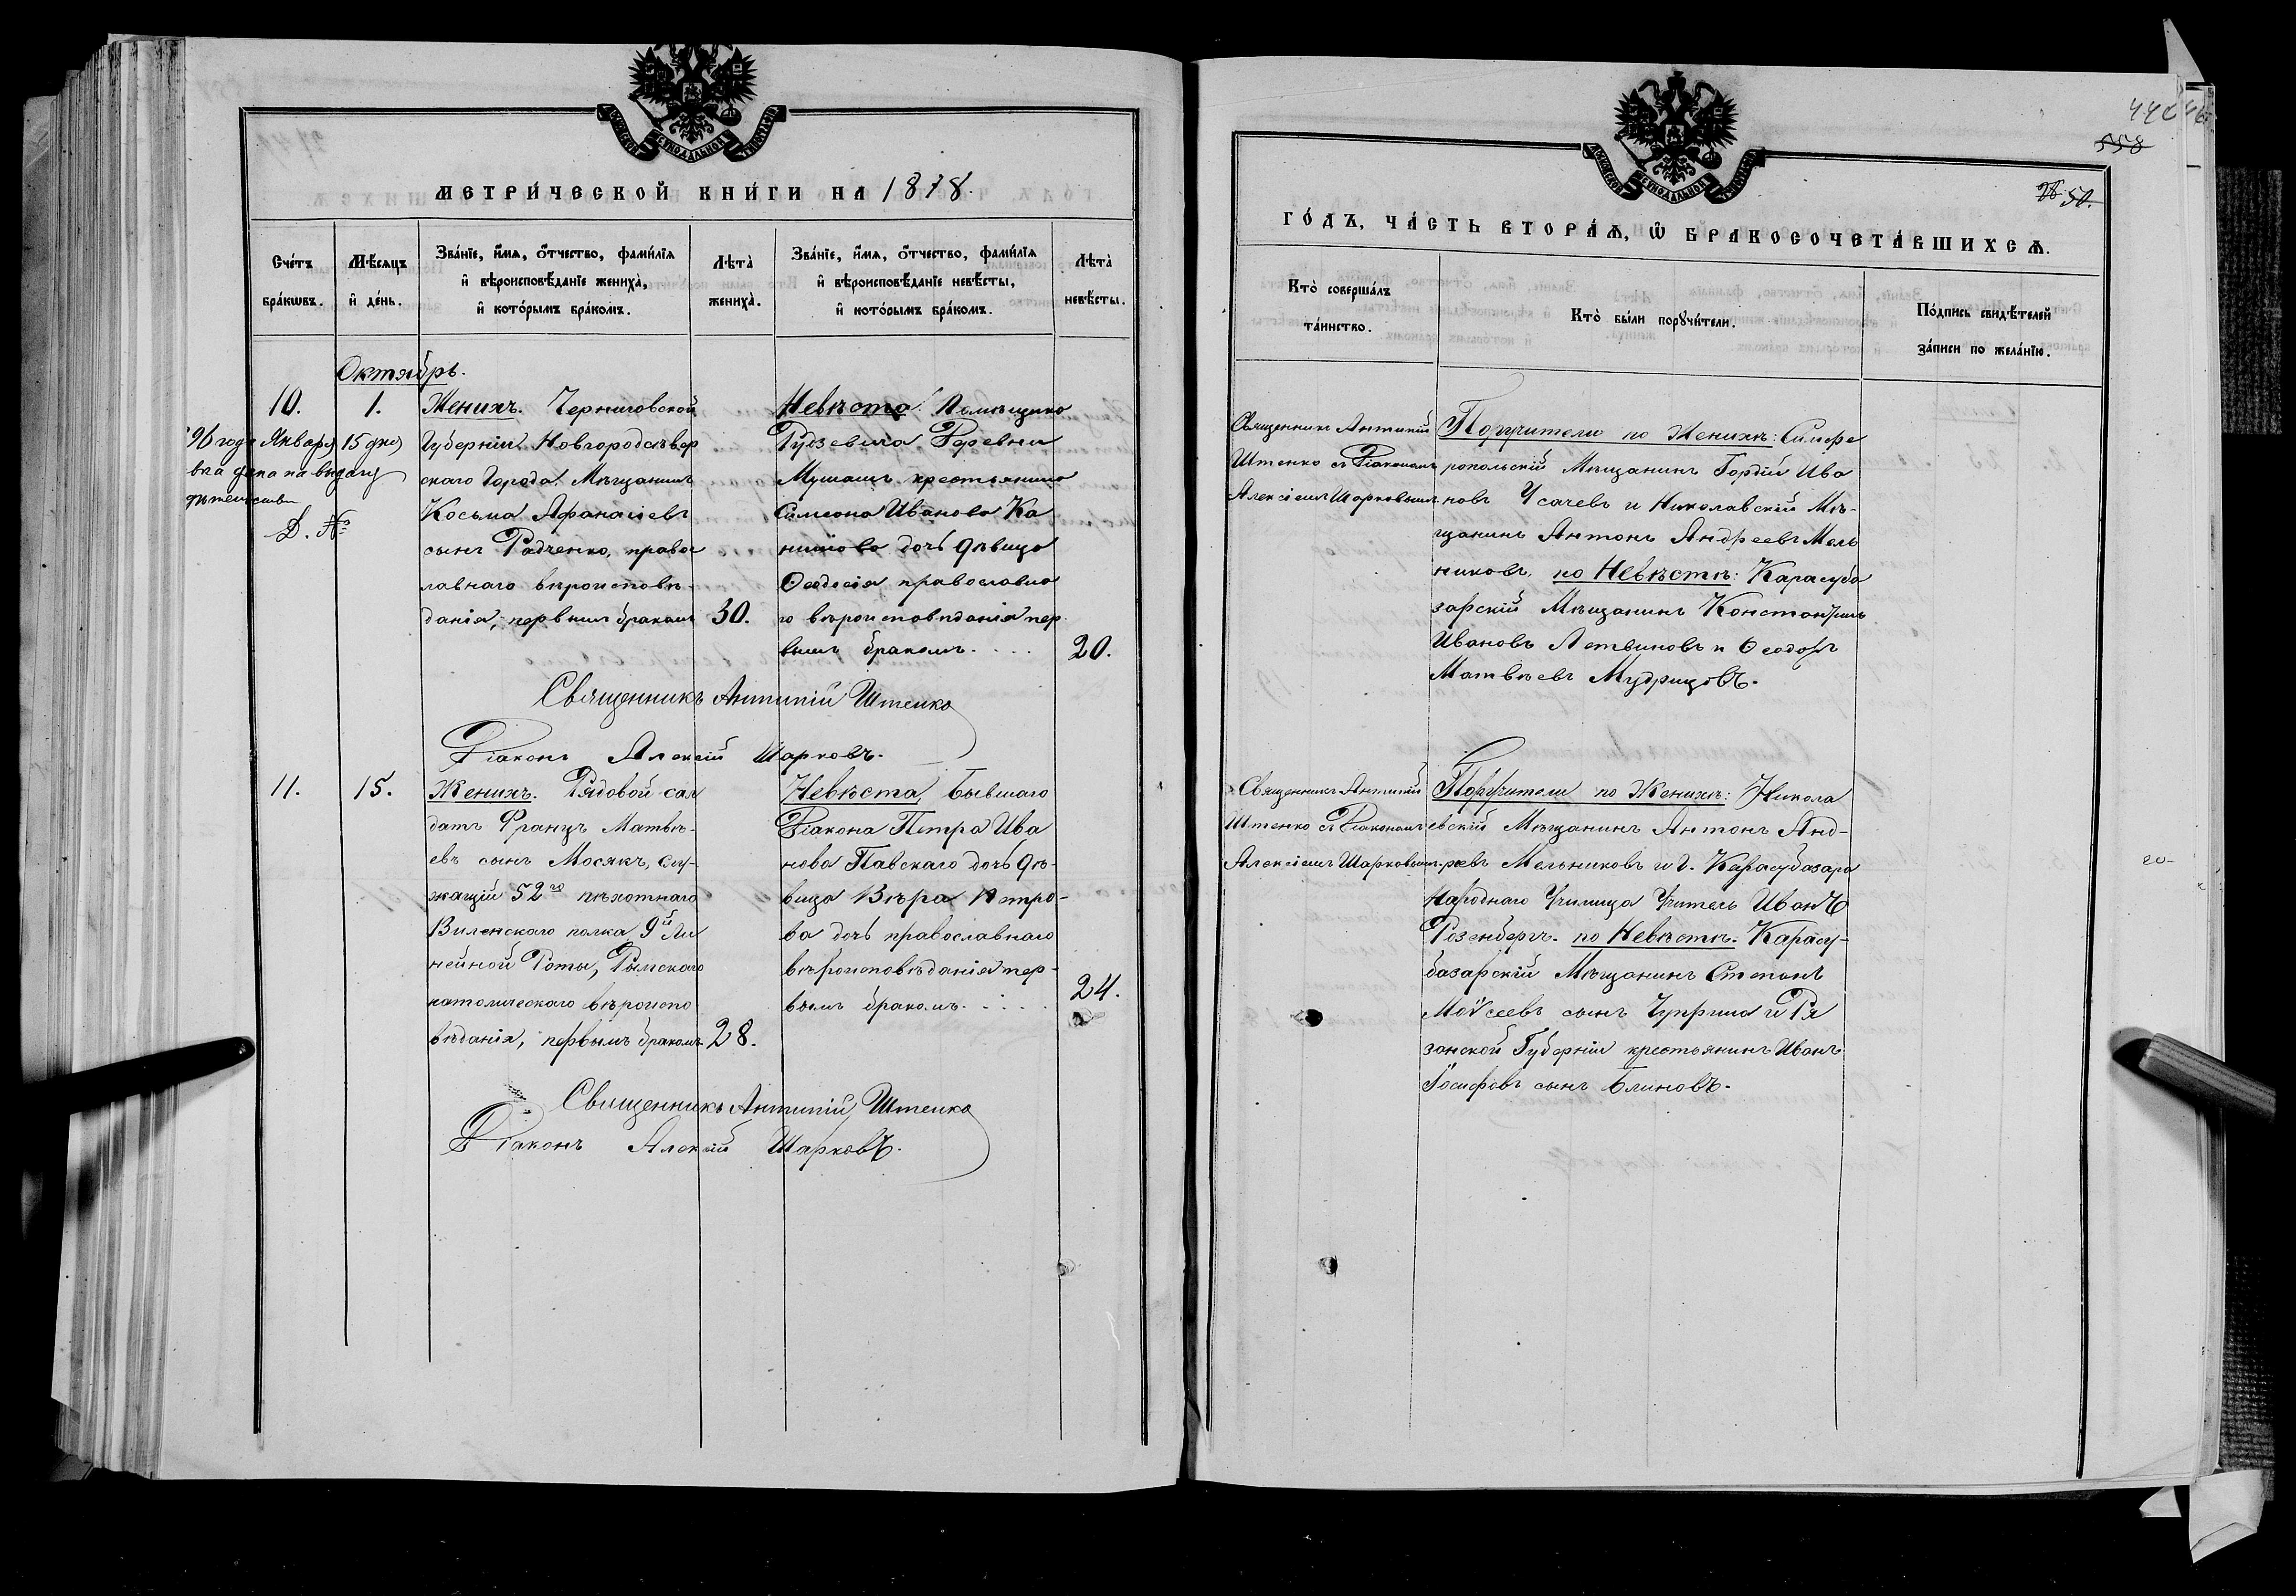 МЕТРИ́ЧЕСКОЙ КНИ́ГИ НА 1878.
Сче́тъ бра́кѡвъ.
Мѣ́сяцъ и҆ де́нь.
Зва́нїе, и҆́мя, ѻ҆́тчество, фами́лїя и҆ вѣроисповѣ́данїе жениха̀, и҆ кото́рымъ бра́комъ.
Лѣ́та жениха̀.
Зва́нїе, и҆́мя, ѻ҆́тчество, фами́лїя и҆ вѣроисповѣ́данїе невѣ́сты, и҆ кото́рымъ бра́комъ.
Лѣ́та невѣ́сты.
Октябрь.
10.
1.
96 года Января 15 дня
на выдачу
Д. №
Женихъ. Черниговской
Губерніи Новгородсѣвер
скаго Города Мѣщанинъ
Косьма Афанасіевъ
сынъ Радченко, правос
лавнаго вѣроисповѣ-
данія, первымъ бракомъ
30.
Невѣста Помѣщика
Деревни
крестьянина
Симеона Иванова Ка
дочь дѣвица
Ѳеодосія православна
го вѣроисповѣданія пер
вымъ бракомъ. . . .
20.
Священникъ Антипій Штенко
Діаконъ Алексій Шарковъ.
11.
15.
Женихъ. Рядовой сол
датъ Францъ Матвѣ-
евъ сынъ Мосякъ, слу-
жащій 52го пѣхотнаго
Виленскаго полка 9й Ли
нейной Роты, Римскаго
католическаго вѣроиспо
вѣданія, первымъ бракомъ
28.
Невѣста, Бывшаго
Діакона Петра Ива
нова Павскаго дочь дѣ-
вица Вѣра Петро-
ва дочь православнаго
вѣроисповѣданія пер-
вымъ бракомъ. . . .
24.
Священникъ Антипій Штенко
Діаконъ Алексій Шарковъ.
558
50.
ГО́ДЪ, ЧА́СТЬ ВТОРА́Ѧ, Ѡ҆ БРАКОСОЧЕТА́ВШИХСѦ.
Кто̀ соверша́лъ та́инство.
Кто̀ бы́ли порꙋчи́тели.
По́дпись свидѣ́телей за́писи по жела́нїю.
Священникъ Антипій
Штенко съ Діакономъ
Алексіемъ Шарковымъ
Поручители по Женихѣ: Симфе
ропольскій Мѣщанинъ Гордій Ива
новъ Усачевъ и Николавскій Мѣ-
щанинъ Антонъ Андреевъ Мель
никовъ, по Невѣстѣ: Карасуба
зарскій Мѣщанинъ Константинъ
Ивановъ Летвиновъ и Ѳеодоръ
Матвѣевъ Мудрицовъ.
Священникъ Антипій
Штенко съ Діакономъ
Алексіемъ Шарковымъ
Поручители по Женихѣ: Никола
евскій Мѣщанинъ Антонъ Анд-
реевъ Мельниковъ и г. Карасубазара
Народнаго Училища Учитель Иванъ
Розенбергъ. по Невѣстѣ. Карасу-
базарскій Мѣщанинъ Степанъ
Моѵсеевъ сынъ Чуприна и Ря
занской Губерніи крестьянинъ Иванъ
Іосифовъ сынъ Блиновъ.